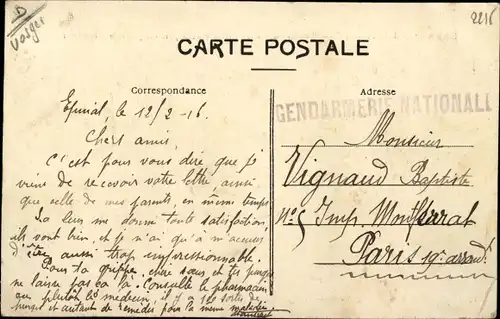 D
Vosges
2216
CARTE POSTALE
Correspondance
Adresse
GENDARMERIE NATIONALE
Epinal, le 12/2-16.
Chers amis,
C'est pour vous dire que je
viens de recevoir votre lettre, ainsi
que celle de mes parents, en même temps
La leur me donne toute satisfaction,
ils vont bien, et je n'ai qu'à m'accuser
d'être aussi trop impressionnable.
Pour ta grippe, chère sœur, et tes
ne laisse pas ça là. Consulte le pharmacien
ou plutôt le médecin, il y a 120 sortes de
et autant de remèdes pour la même maladie
Monsieur
Vignaud Baptiste
N° 5 Imp. Montferrat
Paris 19e arrond.